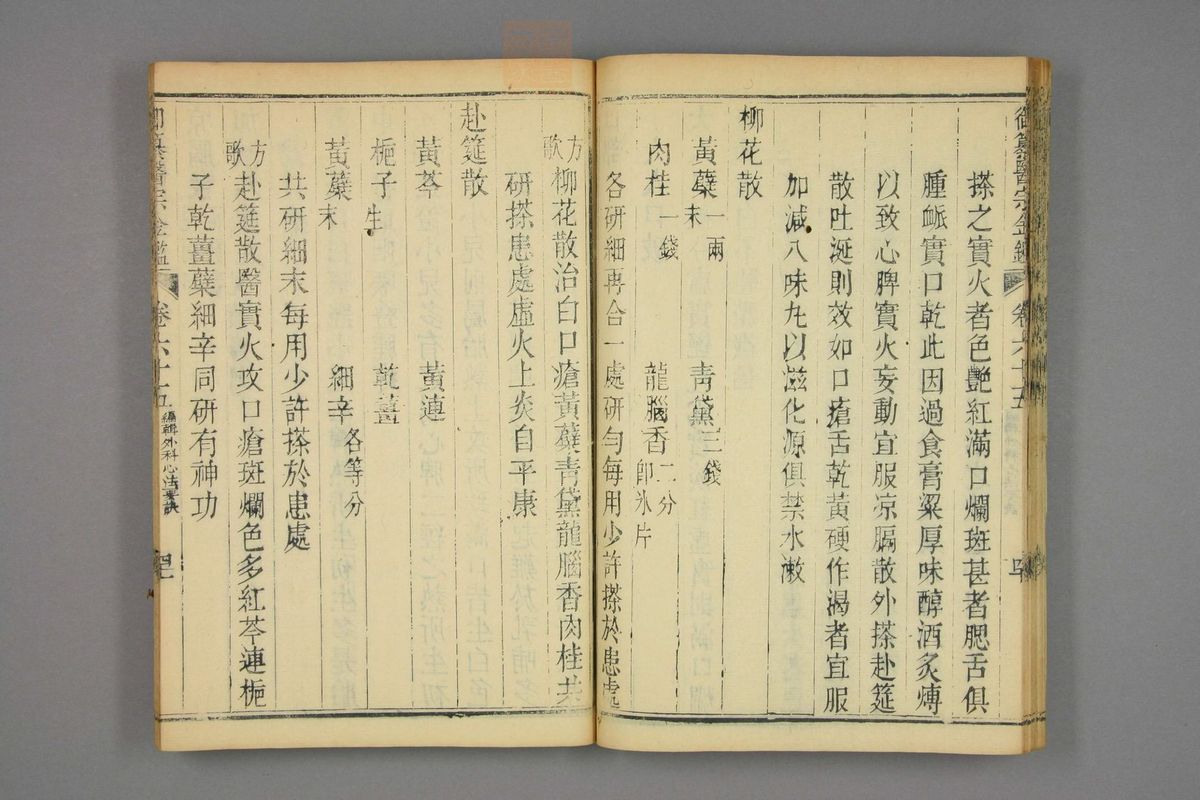 御纂醫宗金鑑 卷六十五
搽之實火者色艷紅滿口爛斑甚者腮舌俱
腫衇實口乾此因過食膏粱厚味醇酒炙煿
以致心脾實火妄動宜服凉膈散外搽赴筵
散吐涎則效如口瘡舌乾黃硬作渴者宜服
加減八味丸以滋化源俱禁水漱
柳花散
黃蘗末一兩 靑黛三錢
肉桂一錢 龍腦香二分卽氷片
各研細再合一處研勻每用少許搽於患處
方歌 柳花散治白口瘡黃蘗靑黛龍腦香肉桂共
研搽患處虛火上炎自平康
赴筵散
黃芩 黃連
梔子生 乾薑
黃蘗末 細辛各等分
共研細末每用少許搽於患處
方歌 赴筵散醫實火攻口瘡斑爛色多紅芩連梔
子乾薑蘗細辛同研有神功
御纂醫宗金鑑 卷六十五 編輯外科心法要訣